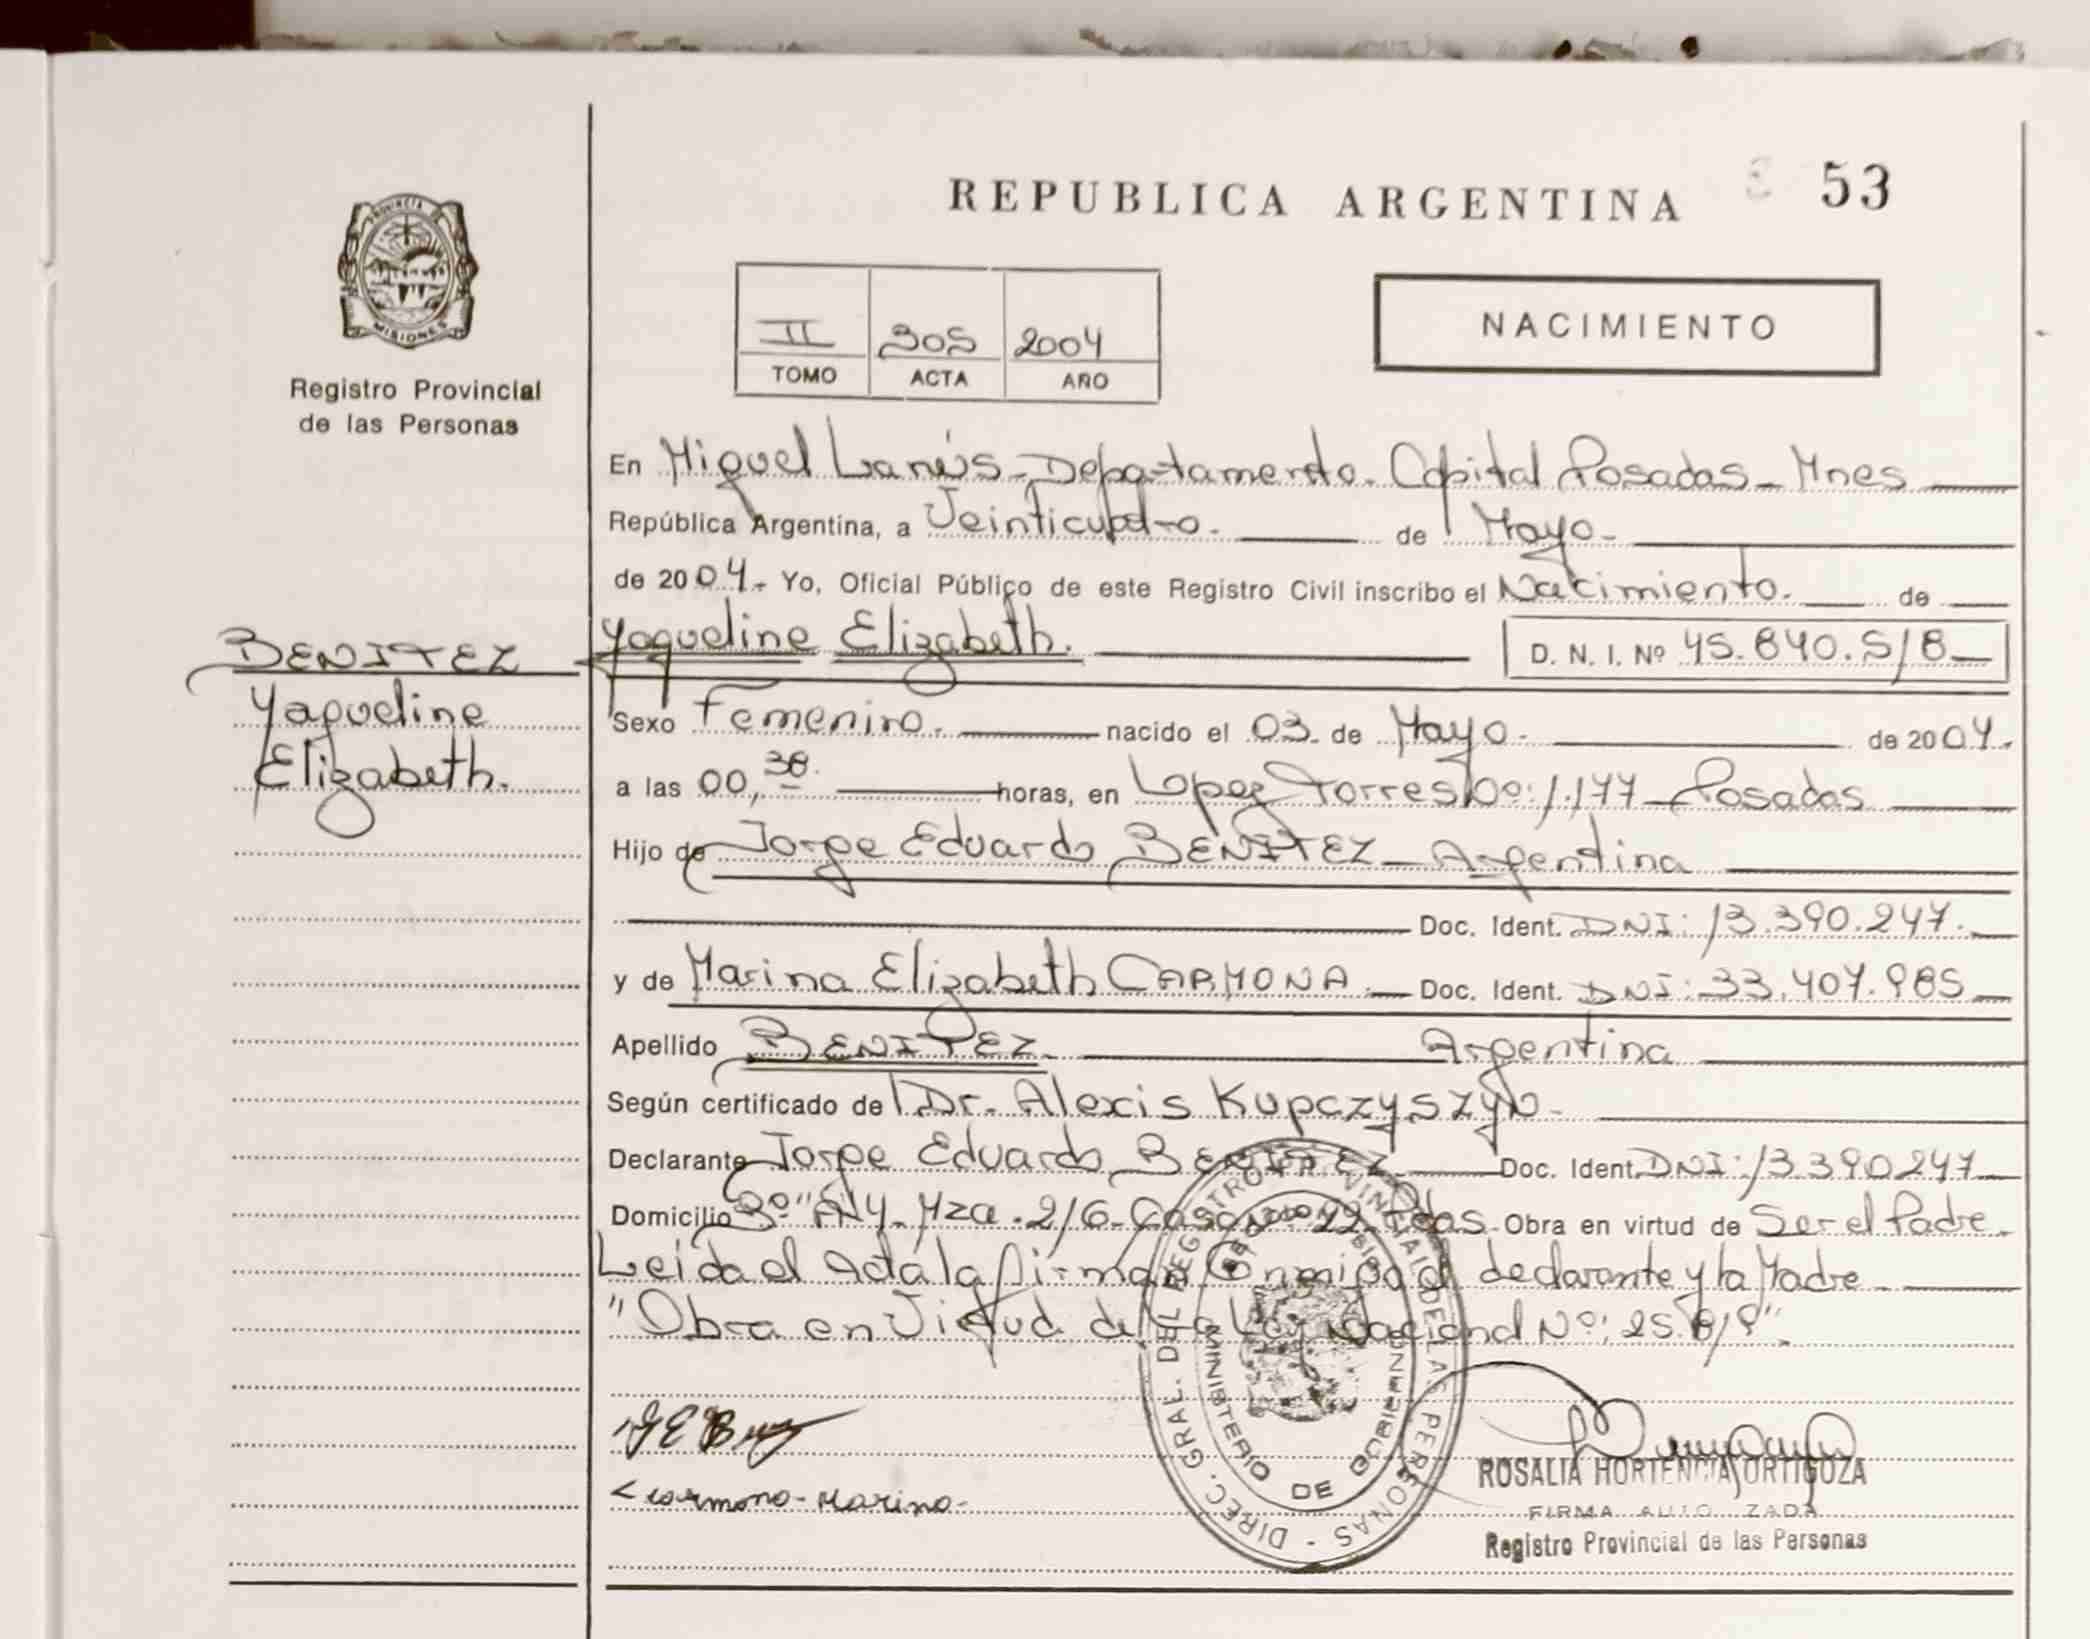 REPUBLICA ARGENTINA 53
PROVINCIA DE
MISIONES
Registro Provincial
de las Personas
II 305 2004
TOMO ACTA AÑO
NACIMIENTO
En Miguel Lanús - Departamento. Capital Posadas - Mnes
República Argentina, a Veinticuatro. de Mayo-
de 2004.- Yo, Oficial Público de este Registro Civil inscribo el Nacimiento. de
BENITEZ Yaqueline Elizabeth. D. N. I. Nº 45.840.518
Yaqueline
Elizabeth.
Sexo Femenino. nacido el 03. de Mayo. de 2004.
a las 00,38. horas, en Lopez Torres Nº: 1.177 - Posadas
Hijo de Jorge Eduardo BENITEZ - Argentina
Doc. Ident. DNI: 13.390.247.
y de Marina Elizabeth CARMONA. Doc. Ident. DNI: 33.407.985
Apellido BENITEZ. Argentina
Según certificado de Dr. Alexis Kupczyszyn-
Declarante Jorge Eduardo BENITEZ Doc. Ident. DNI: 13.390247
Domicilio Bº Mza. 216- Casa Nº 22 Pdas. Obra en virtud de Ser el Padre.
Leida el Acta la firman Conmigo el declarante y la Madre
"Obra en Virtud de La Ley Nacional Nº: 25.819".
Carmona - Marina -
DIREC. GRAL. DEL REGISTRO PROVINCIAL DE LAS PERSONAS -
MINISTERIO DE GOBIERNO
ROSALIA HORTENCIA ORTIGOZA
FIRMA AUTO ZADA
Registro Provincial de las Personas